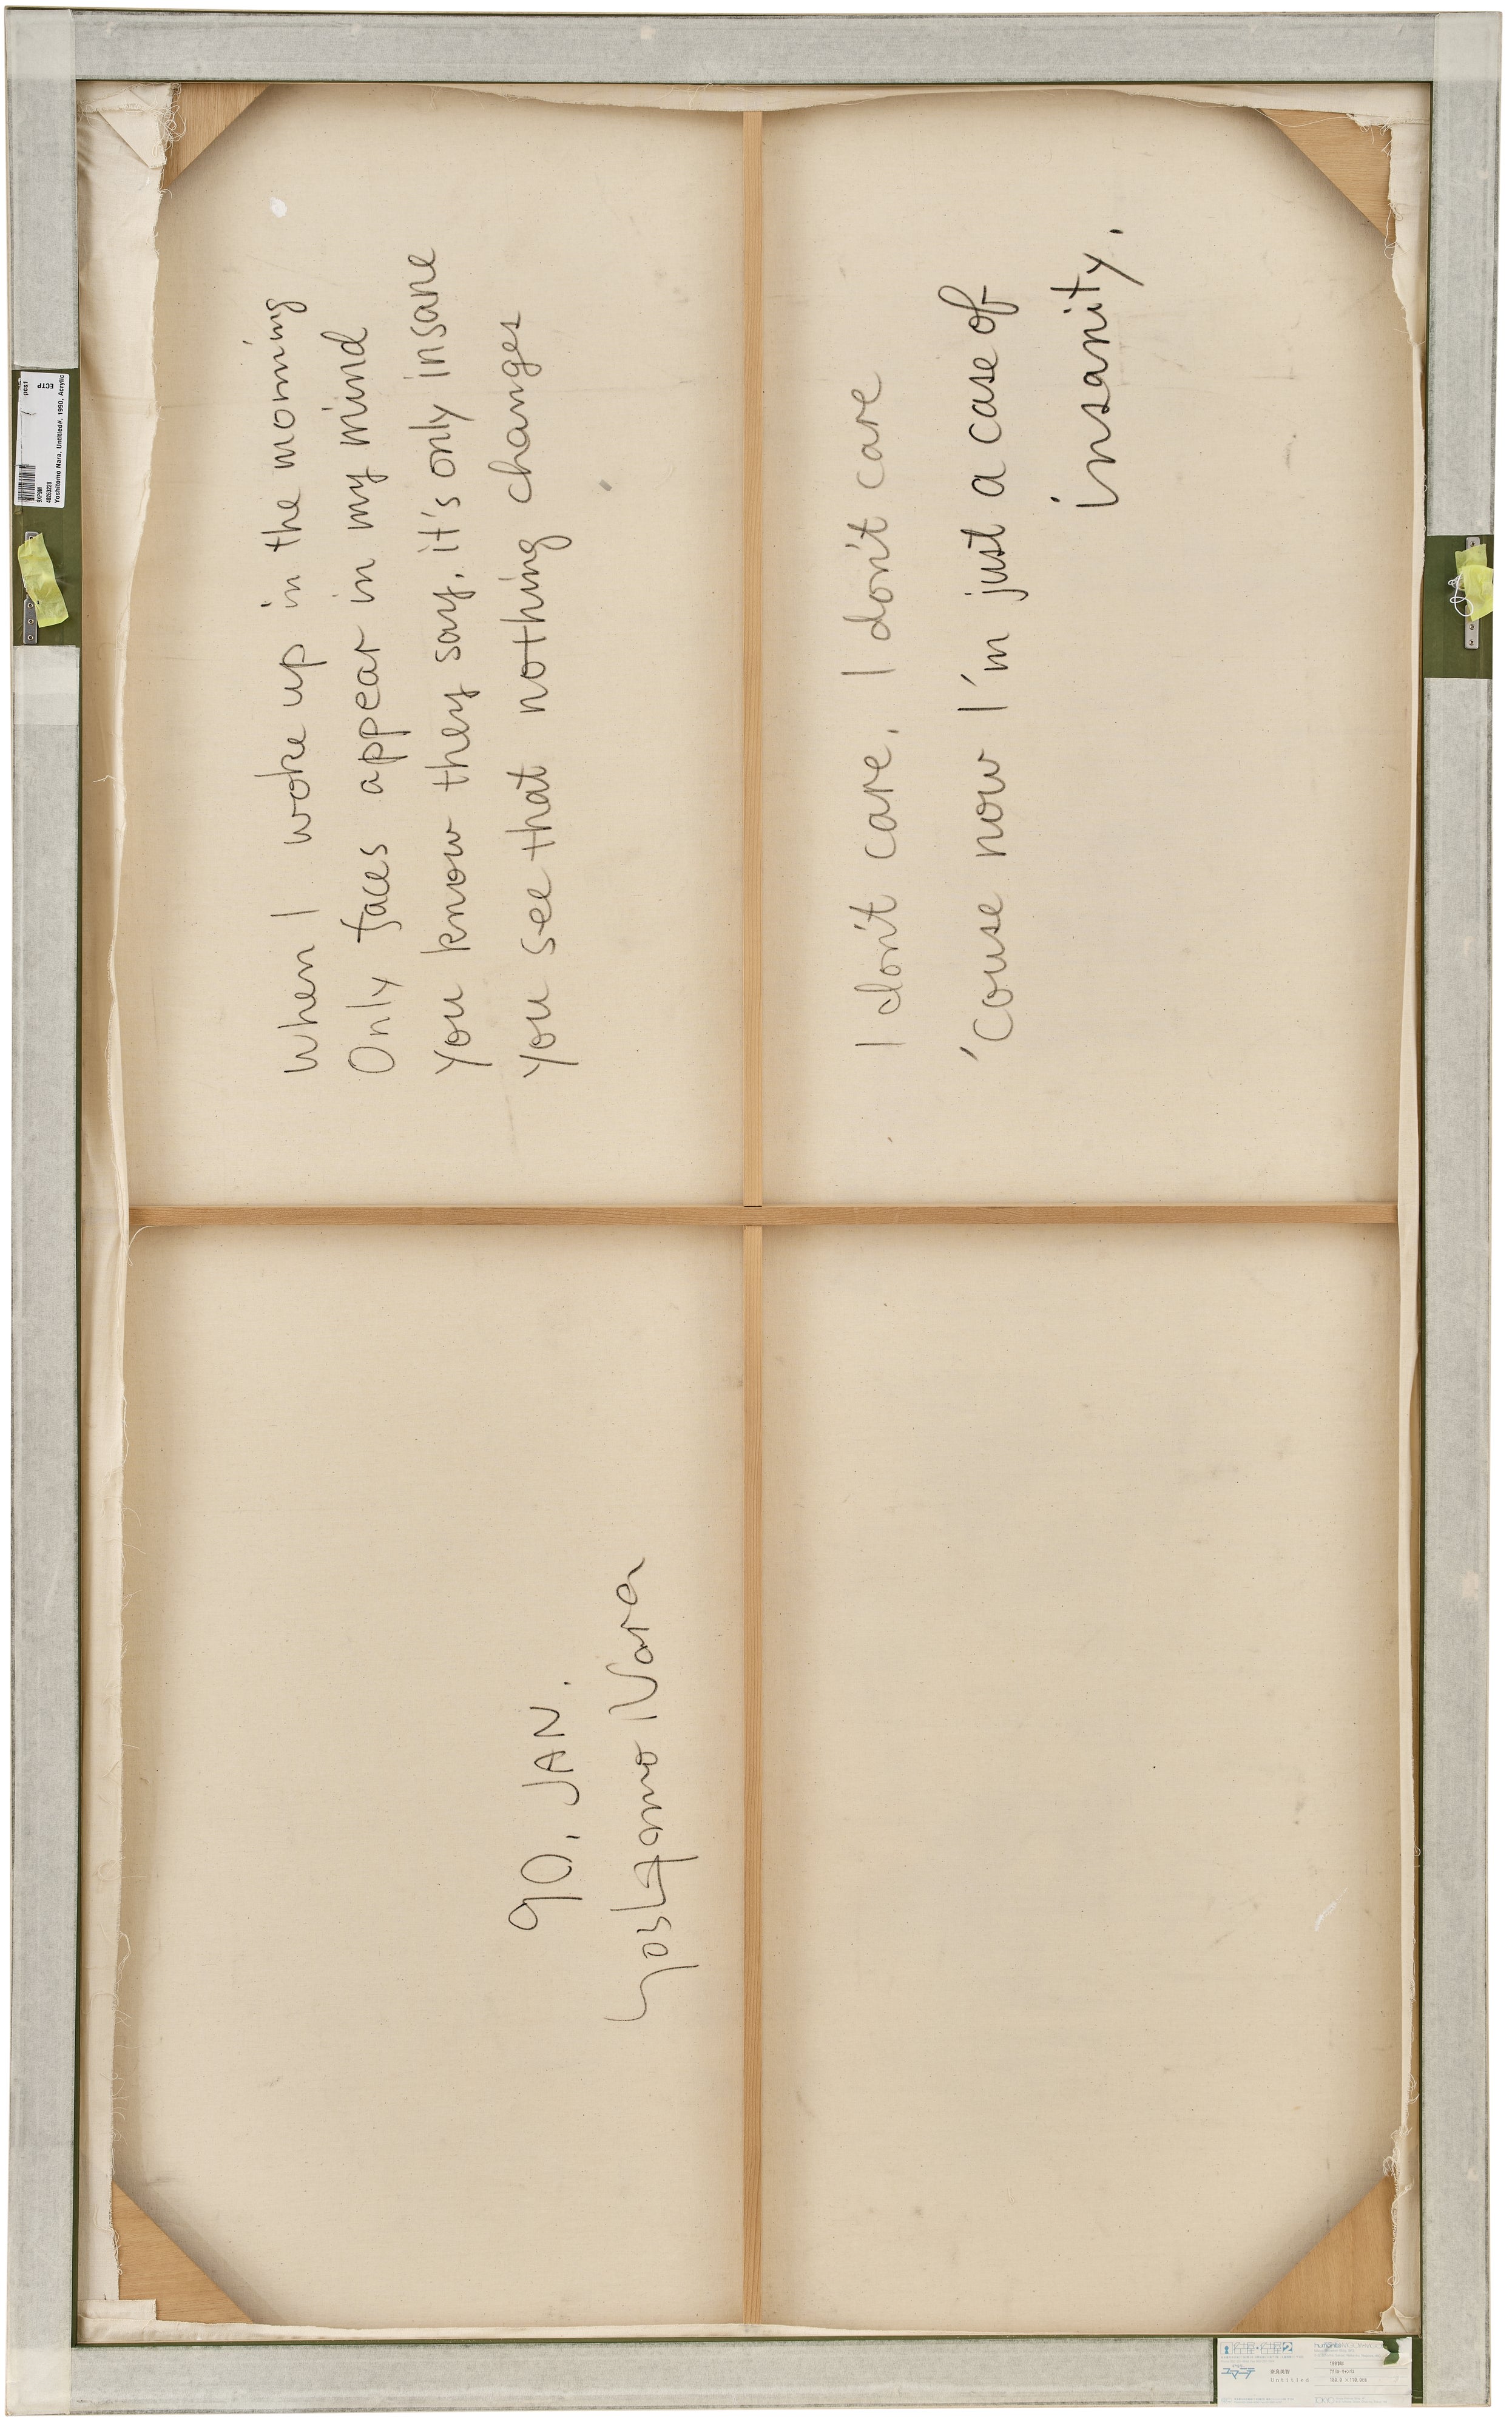 When I woke up in the morning
Only faces appear in my mind
you know they say, it's only insane
you see that nothing changes
I don't care, I don't care
'couse now I'm just a case of
insanity.
90, JAN.
Yoshitomo Nara
ECTP
pcs1
40263228
Yoshitomo Nara, Untitled#, 1990, Acrylic
ユマニテ
Untitled